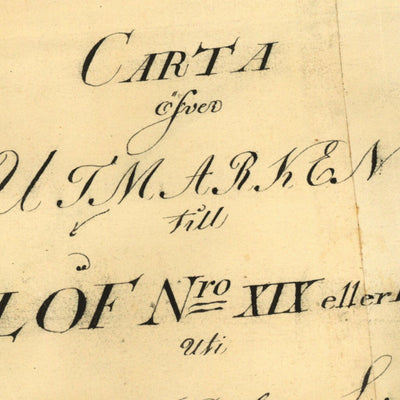 CARTA
öfver
UTMARKEN
till
LÖF Nro XIX eller
Uti